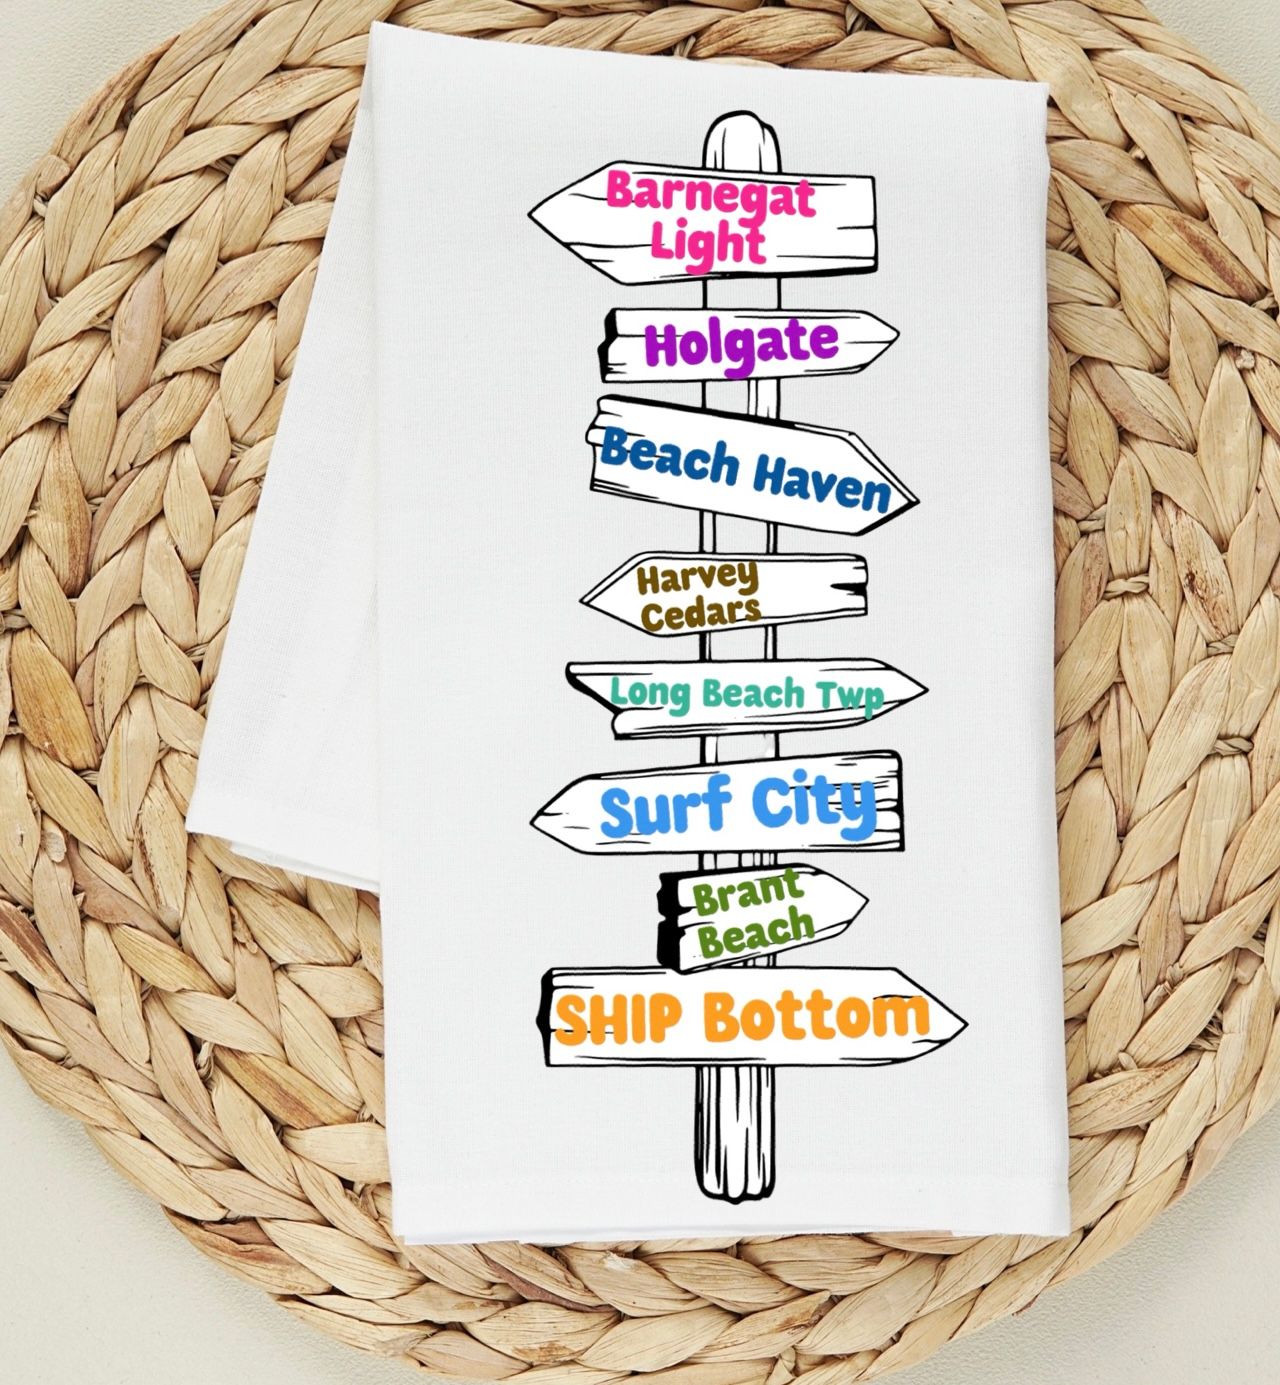 Barnegat
Light
Holgate
Beach Haven
Harvey
Cedars
Long Beach Twp
Surf City
Brant
Beach
SHIP Bottom